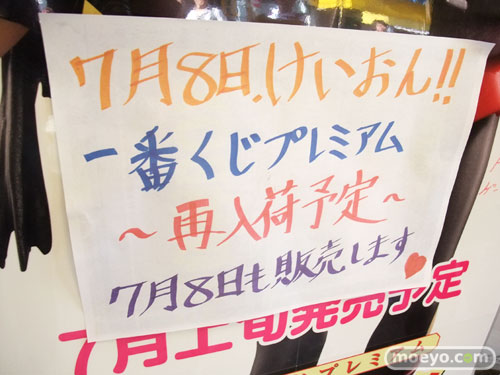 7月8日.けいおん!!
一番くじプレミアム
～再入荷予定～
7月8日も販売します
7月上旬発売予定
プレミアム
moeyo.com